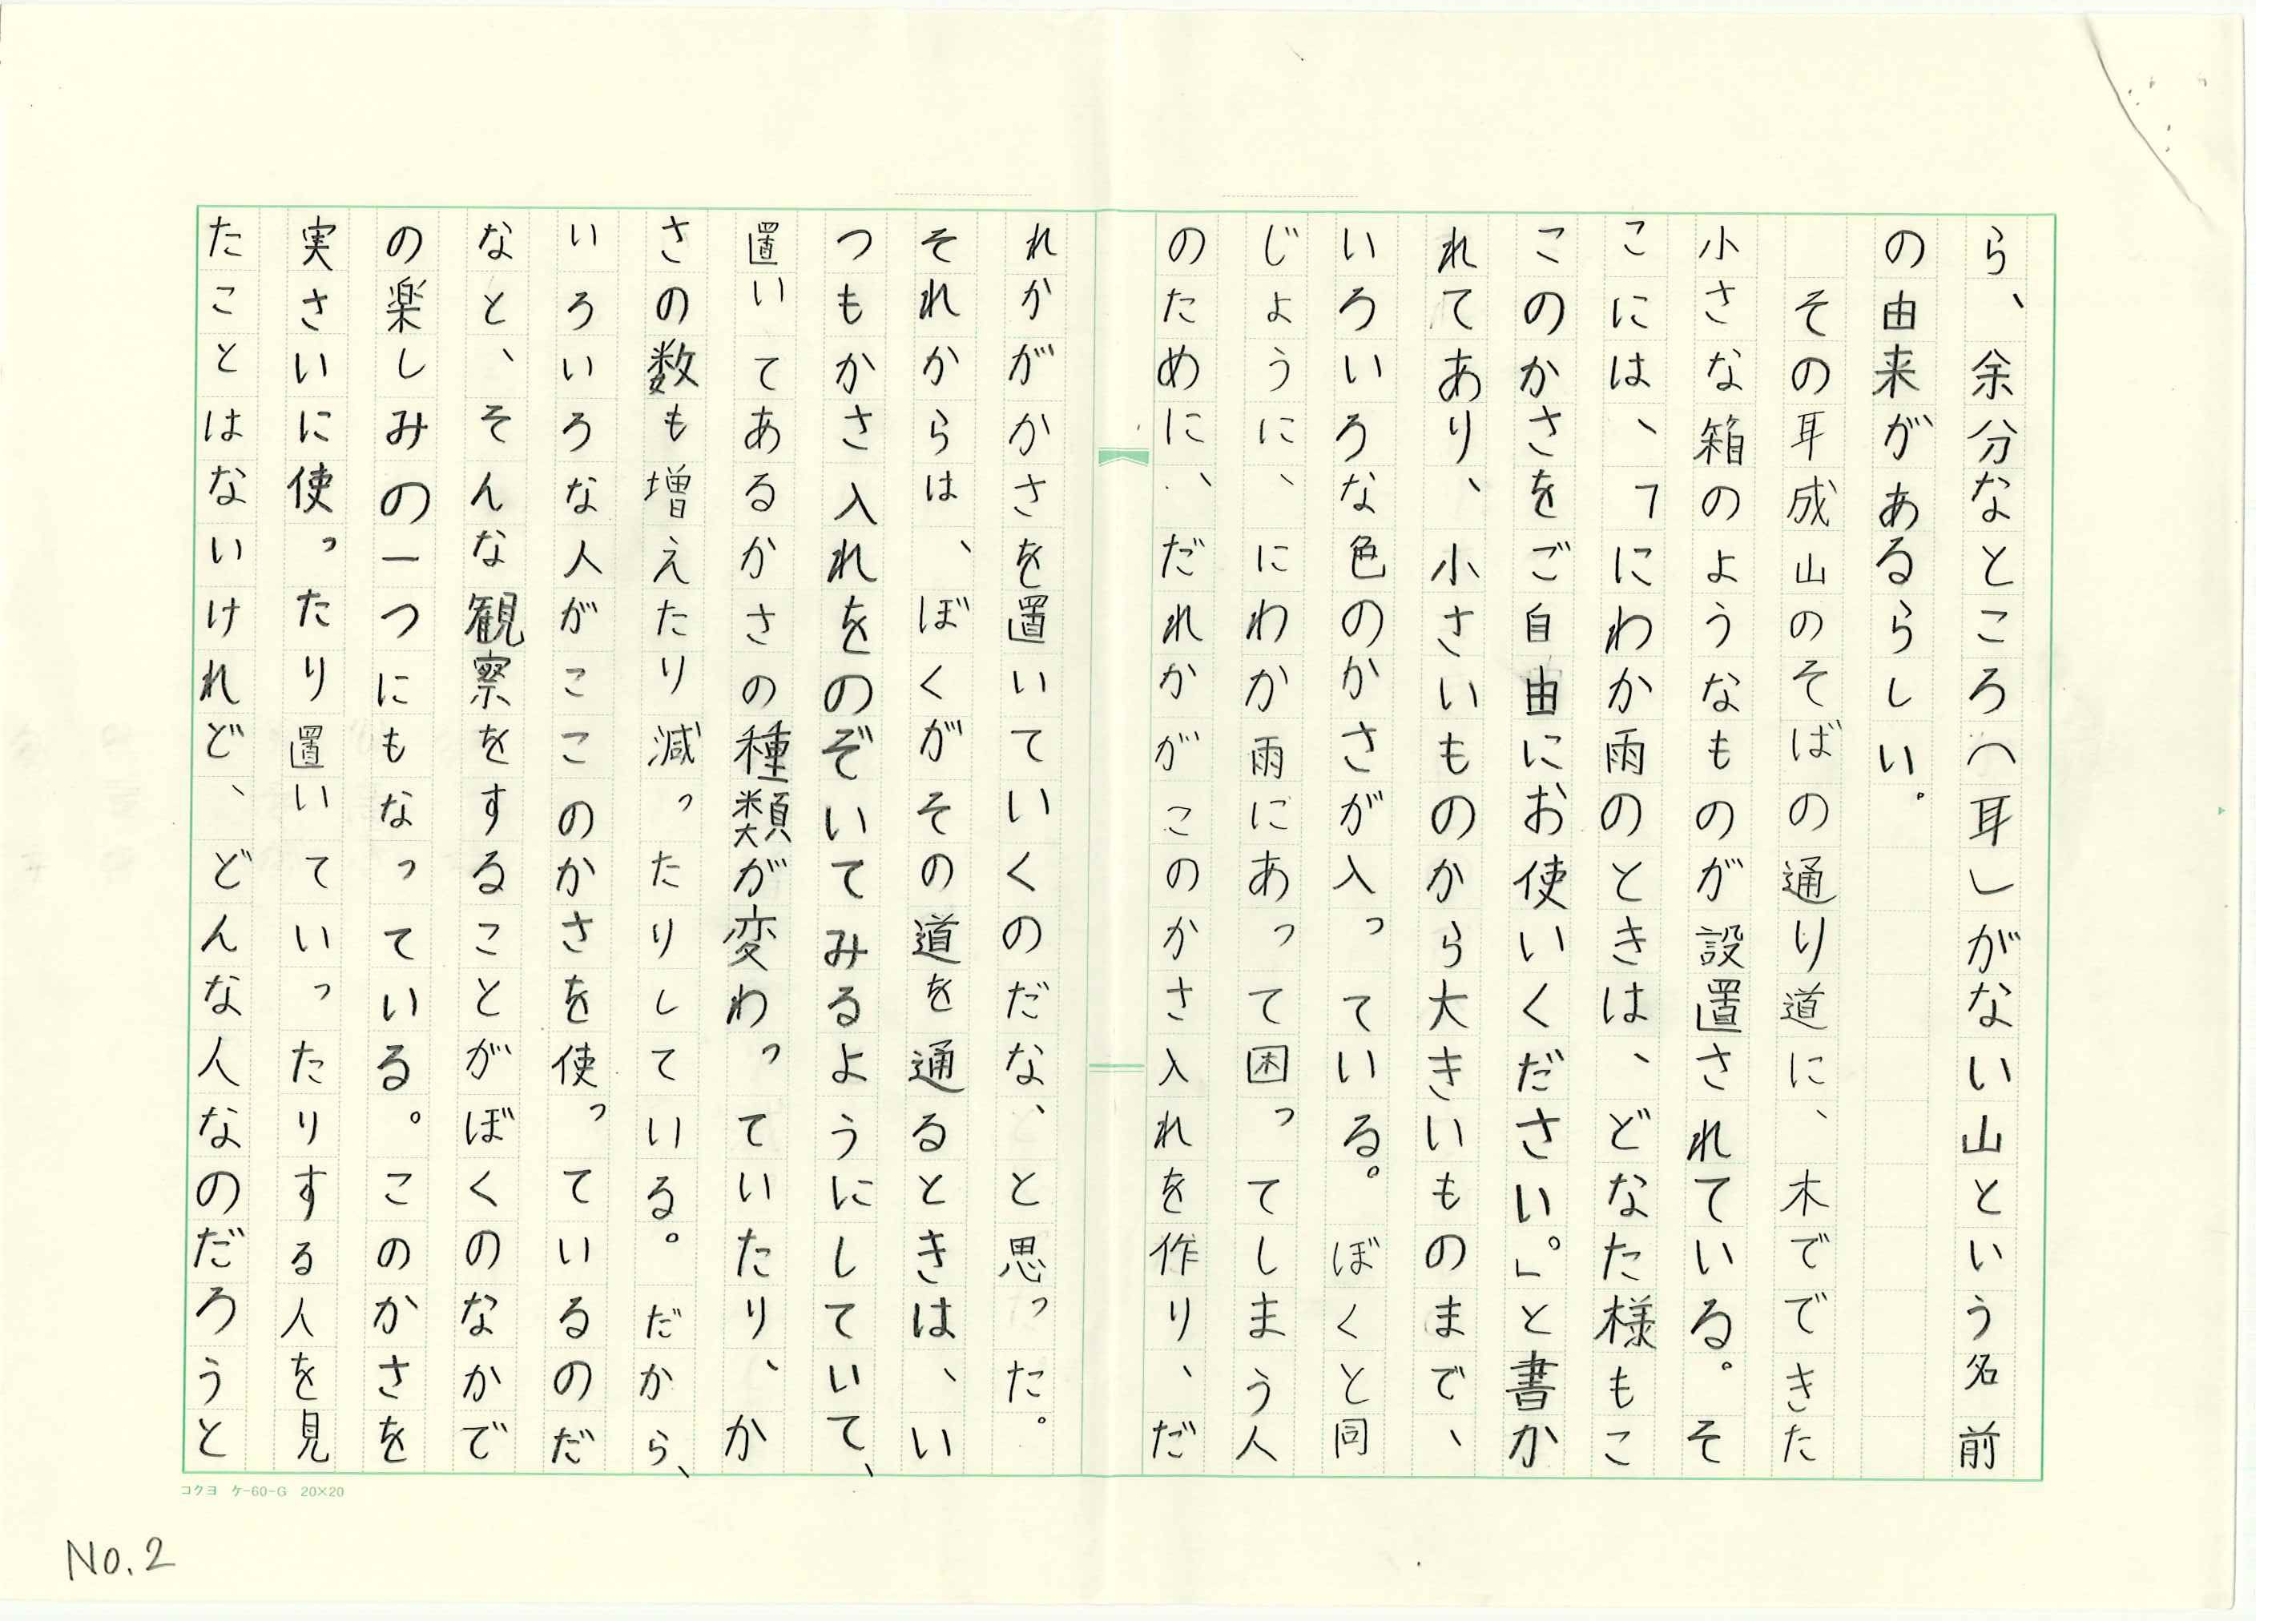 ら、余分なところ（耳）がない山という名前
の由来があるらしい。
その耳成山のそばの通り道に、木でできた
小さな箱のようなものが設置されている。そ
こには、「にわか雨のときは、どなた様もこ
このかさをご自由にお使いください。」と書か
れてあり、小さいものから大きいものまで、
いろいろな色のかさが入っている。ぼくと同
じように、にわか雨にあって困ってしまう人
のために、だれかがこのかさ入れを作り、だ
れかがかさを置いていくのだな、と思った。
それからは、ぼくがその道を通るときは、い
つもかさ入れをのぞいてみるようにしていて、
置いてあるかさの種類が変わっていたり、か
さの数も増えたり減ったりしている。だから、
いろいろな人がここのかさを使っているのだ
なと、そんな観察をすることがぼくのなかで
の楽しみの一つにもなっている。このかさを
実さいに使ったり置いていったりする人を見
たことはないけれど、どんな人なのだろうと
コクヨ ケ-60-G 20×20
No.2